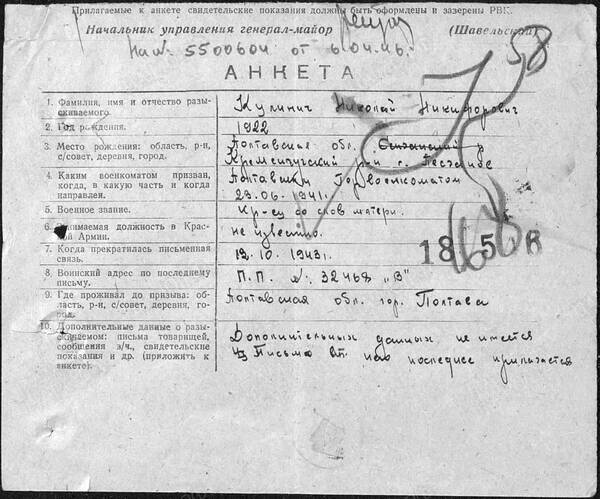 Прилагаемые к анкете свидетельские показания должны быть оформлены и заверены РВК.
Начальник управления генерал-майор (Шавельский)
На № 5500604 от 6.04.46.
58
АНКЕТА
1. Фамилия, имя и отчество разыскиваемого. Кулинич Николай Никифорович
2. Год рождения. 1922
3. Место рождения: область, р-н, с/совет, деревня, город. Полтавская обл.
Кременчугский р-н
4. Каким военкоматом призван, когда, в какую часть и когда направлен. Полтавским Горвоенкоматом
23.06.1941г.
5. Военное звание. Кр-ец со слов матери.
6. Занимаемая должность в Красной Армии. не известно.
7. Когда прекратилась письменная связь. 12.10.1943г.
8. Воинский адрес по последнему письму. П.П. № 32468 „В"
9. Где проживал до призыва: область, р-н, с/совет, деревня, город. Полтавская обл. гор. Полтава
10. Дополнительные данные о разыскиваемом: письма товарищей, сообщения в/ч., свидетельские показания и др. (приложить к анкете). Дополнительных данных не имеется
последнее прилагается